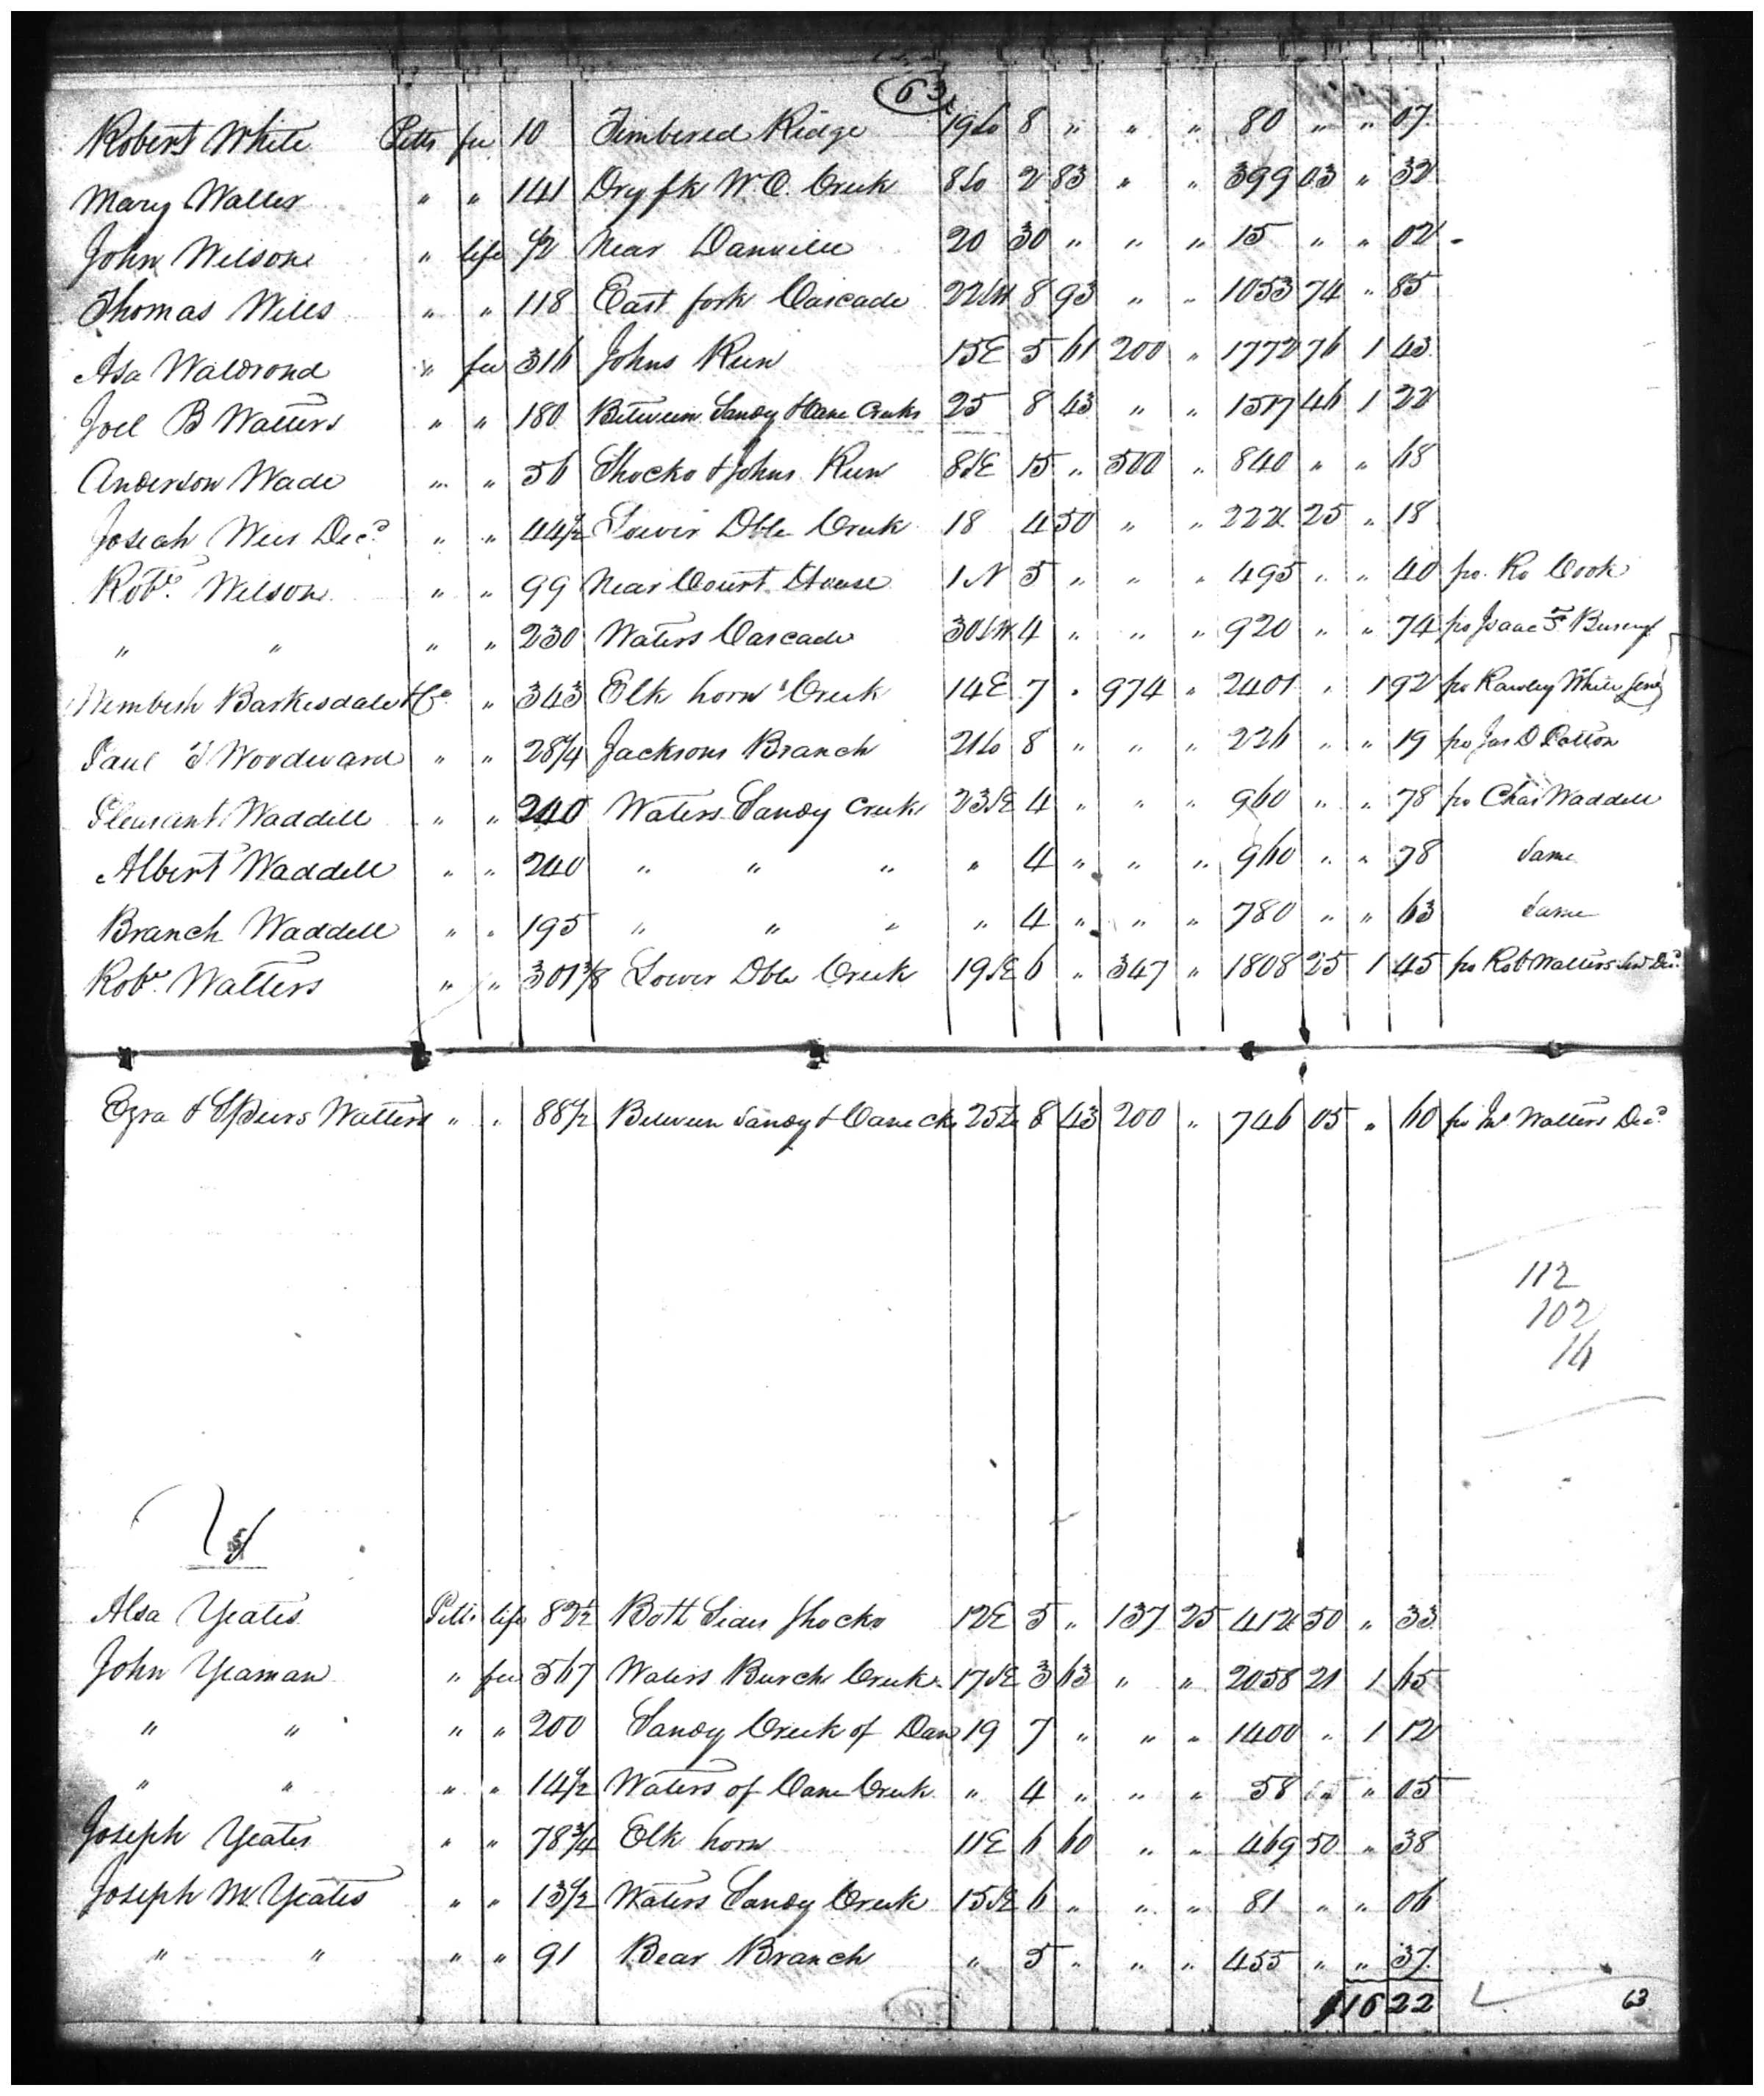 63
Robert White Pitts fee 10 Timbered Ridge 19 So 8 " " " 80 " " 07
Mary Waller " " 141 Dry fk W. O. Creek 8 So 2 83 " " 399 03 " 32
John Wilson " life 1/2 Near Danville 20 30 " " " 15 " " 02
Thomas Wiles " " 118 East fork Cascade 22 SW 8 93 " " 1053 74 " 85
Asa Waldrond " fee 316 Johns Run 15E 5 61 200 " 1772 76 1 43
Joel B Watters " " 180 Between Sandy & Cane Creeks 25 8 43 " " 1517 46 1 22
Anderson Wade " " 56 Shocko & Johns Run 8SE 15 " 500 " 840 " " 68
Josiah Wier Decd " " 44 1/2 Lower Dble Creek 18 4 50 " " 222 25 " 18
Robt. Wilson " " 99 Near Court House 1N 5 " " " 495 " " 40 fro. Ro Cook
" " " " 230 Waters Cascade 30SW 4 " " " 920 " " 74 fro Isaac
Wimbish Barksdale & Co " 343 Elk horn Creek 14E 7 " 974 " 2401 " 1 92 fro Rawley White Senr
Paul Woodward " " 28 1/4 Jacksons Branch 21 So 8 " " " 226 " " 19 fro Jas D Patton
Pleasant Waddill " " 240 Waters Sandy Creek 23SE 4 " " " 960 " " 78 fro Chas Waddell
Albert Waddell " " 240 " " " " 4 " " " 960 " " 78 Same
Branch Waddell " " 195 " " " " 4 " " " 780 " " 63 Same
Robt. Watters " " 301 3/8 Lower Dble Creek 19SE 6 " 347 " 1808 25 1 45 fro Rob Watters Senr Decd
Ezra & Speirs Watters " " 88 1/2 Between Sandy & Cane Cks 25 So 8 43 200 " 746 05 " 60 fro Watters Decd
112
102
16
Y
Alsa Yeates Pitts life 82 1/2 Both Sides Shocko 12E 5 " 137 25 412 50 " 33
John Yeaman " fee 567 Waters Burchs Creek 17SE 3 63 " " 2058 21 1 65
" " " " 200 Sandy Creek of Dan 19 7 " " " 1400 " 1 12
" " " " 14 1/2 Waters of Cane Creek " 4 " " " 58 " 05
Joseph Yeates " " 78 3/4 Elk horn 11E 6 60 " " 469 50 " 38
Joseph M. Yeates " " 13 1/2 Waters Sandy Creek 15SE 6 " " " 81 " " 06
" " " " 91 Bear Branch " 5 " " " 455 " " 37
16 22
63